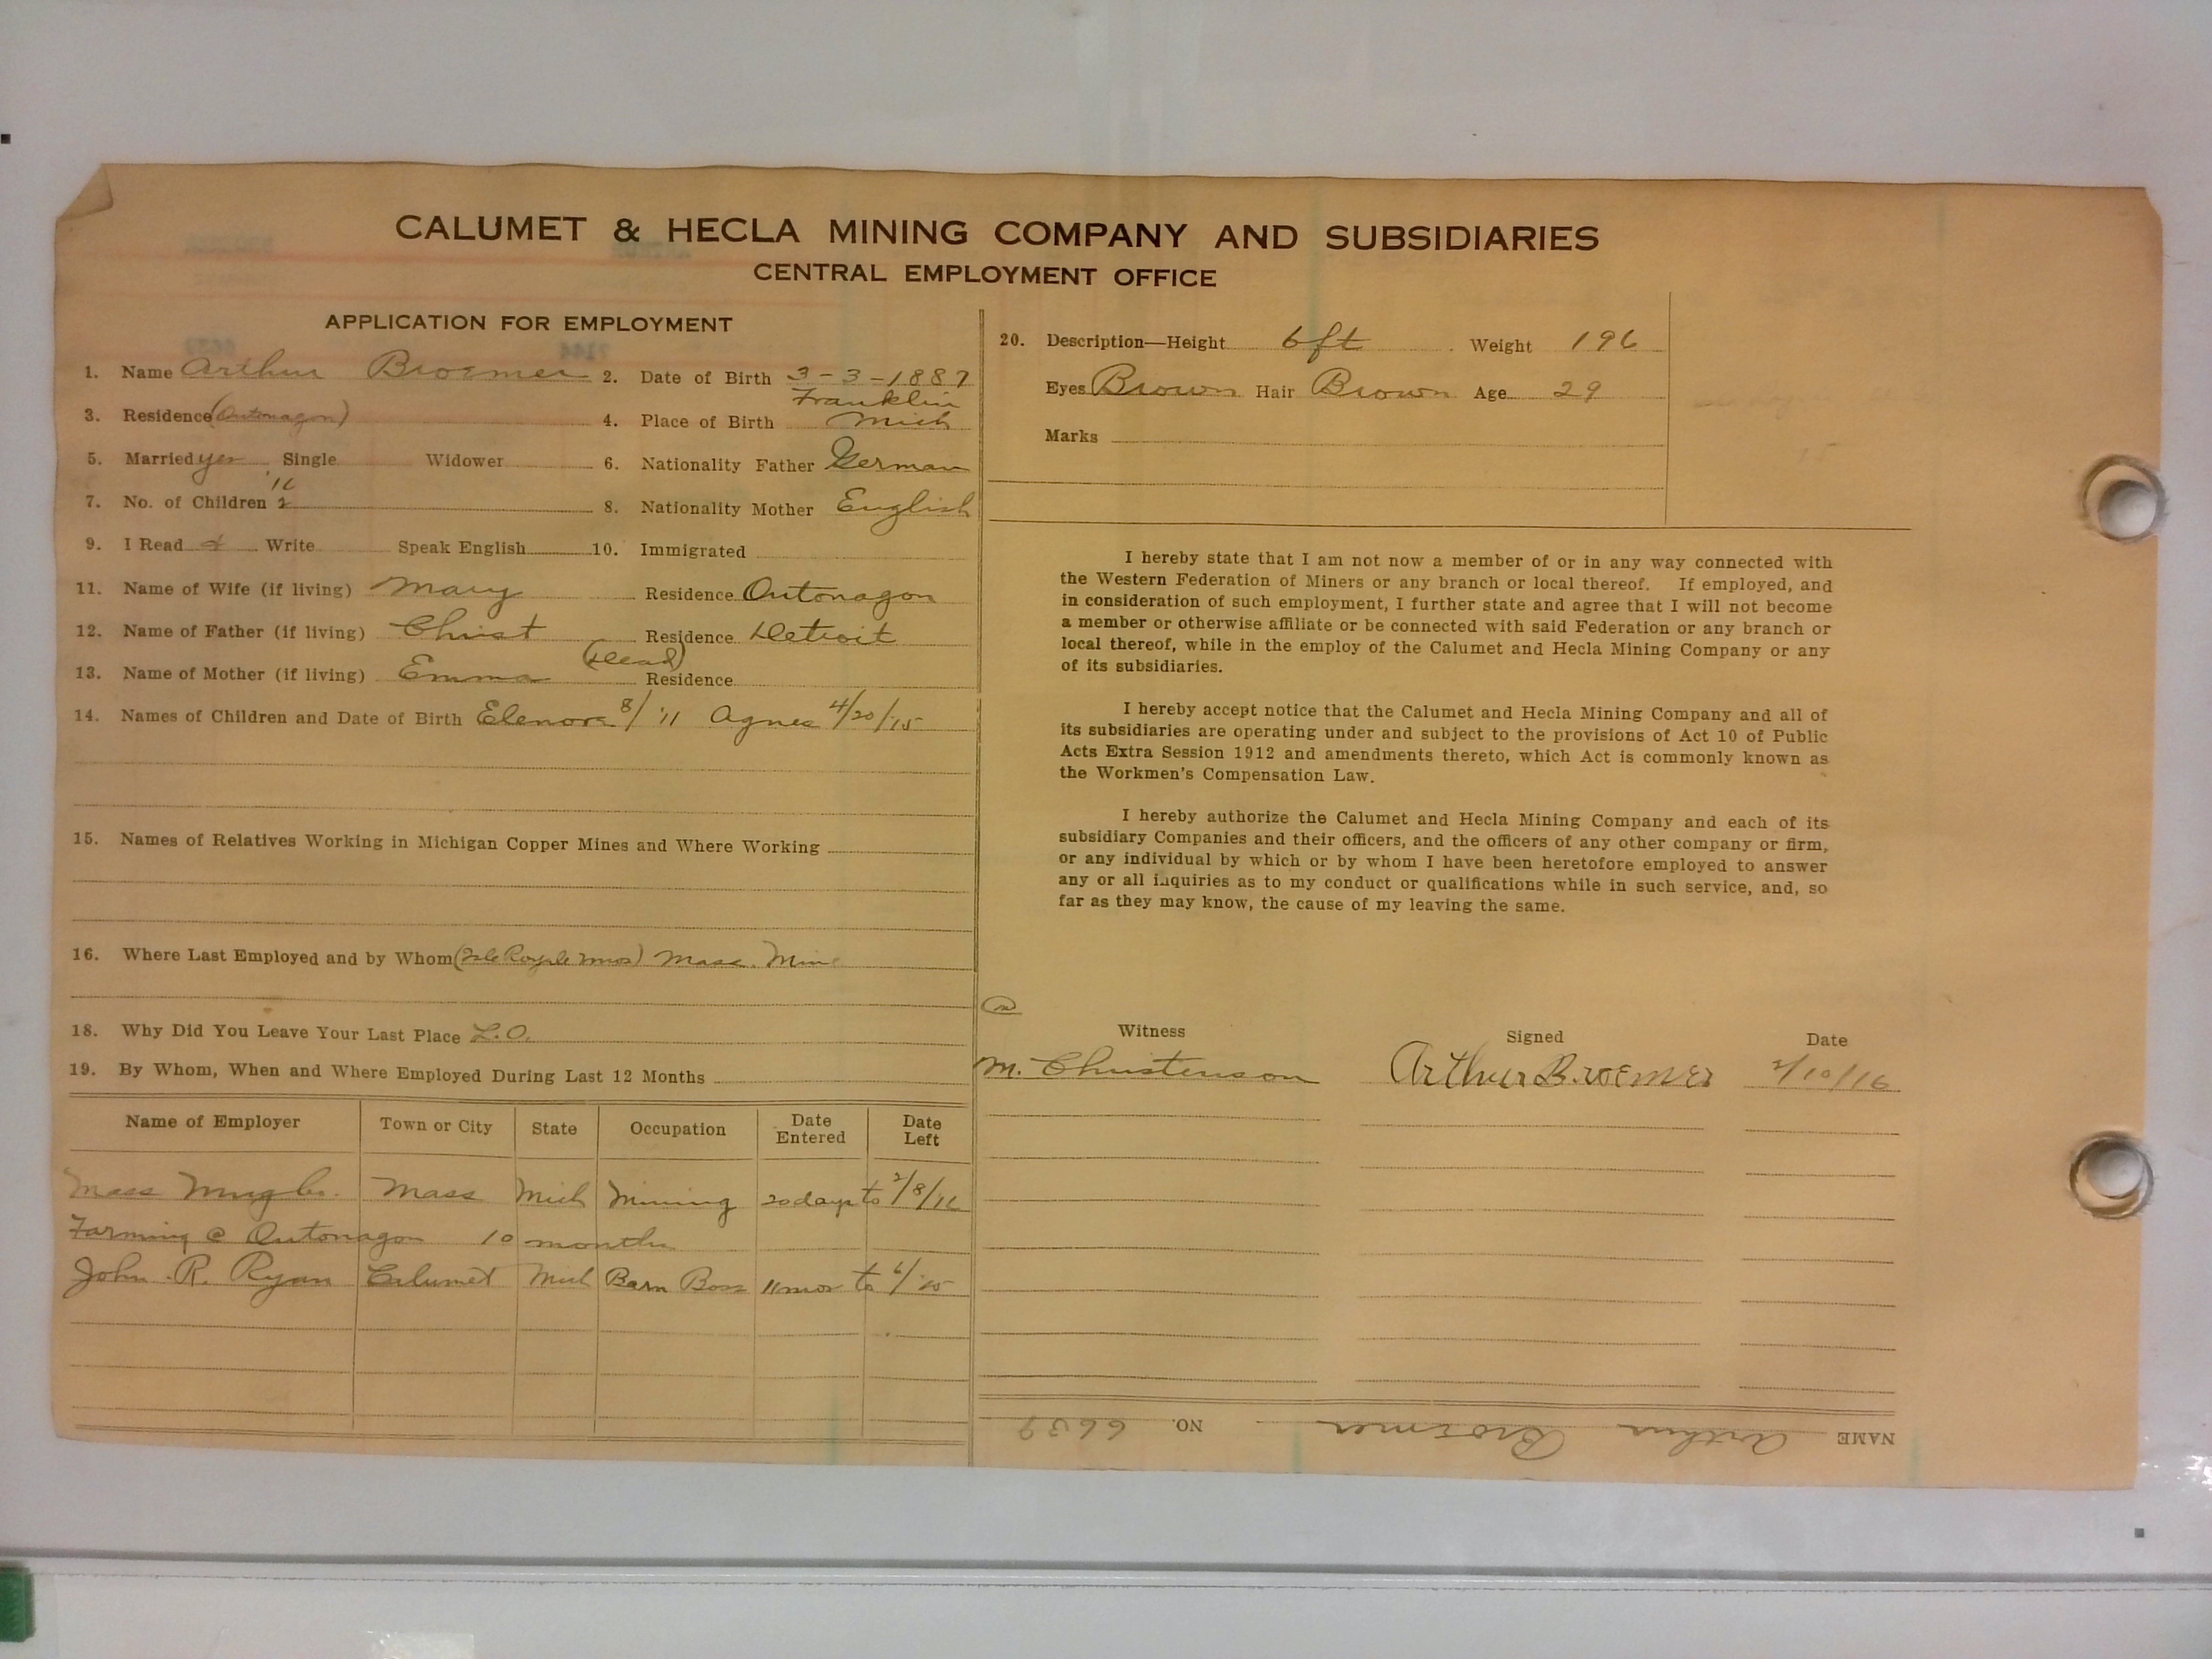 CALUMET & HECLA MINING COMPANY AND SUBSIDIARIES
CENTRAL EMPLOYMENT OFFICE
APPLICATION FOR EMPLOYMENT
1. Name Arthur Broemer 2. Date of Birth 3-3-1887
3. Residence (Ontonagon) 4. Place of Birth Franklin Mich
5. Married yes Single Widower 6. Nationality Father German
7. No. of Children 2 8. Nationality Mother English
9. I Read & Write Speak English 10. Immigrated
11. Name of Wife (if living) Mary Residence Ontonagon
12. Name of Father (if living) Christ Residence Detroit
13. Name of Mother (if living) Emma (Dead) Residence
14. Names of Children and Date of Birth Elenora 8/'11 Agnes 4/20/15
15. Names of Relatives Working in Michigan Copper Mines and Where Working
16. Where Last Employed and by Whom (Isle Royale) Mass. Min
18. Why Did You Leave Your Last Place L.O.
19. By Whom, When and Where Employed During Last 12 Months
Name of Employer Town or City State Occupation Date Entered Date Left
Mass Mng Co. Mass Mich Mining 20 days to 2/8/16
Farming @ Ontonagon 10 months
John R. Ryan Calumet Mich Barn Boss 11 mos to 6/'15
20. Description—Height 6ft Weight 196
Eyes Brown Hair Brown Age 29
Marks
I hereby state that I am not now a member of or in any way connected with
the Western Federation of Miners or any branch or local thereof. If employed, and
in consideration of such employment, I further state and agree that I will not become
a member or otherwise affiliate or be connected with said Federation or any branch or
local thereof, while in the employ of the Calumet and Hecla Mining Company or any
of its subsidiaries.
I hereby accept notice that the Calumet and Hecla Mining Company and all of
its subsidiaries are operating under and subject to the provisions of Act 10 of Public
Acts Extra Session 1912 and amendments thereto, which Act is commonly known as
the Workmen's Compensation Law.
I hereby authorize the Calumet and Hecla Mining Company and each of its
subsidiary Companies and their officers, and the officers of any other company or firm,
or any individual by which or by whom I have been heretofore employed to answer
any or all inquiries as to my conduct or qualifications while in such service, and, so
far as they may know, the cause of my leaving the same.
Witness Signed Date
M. Christenson Arthur Broemer 2/10/16
NAME Arthur Broemer NO. 6639